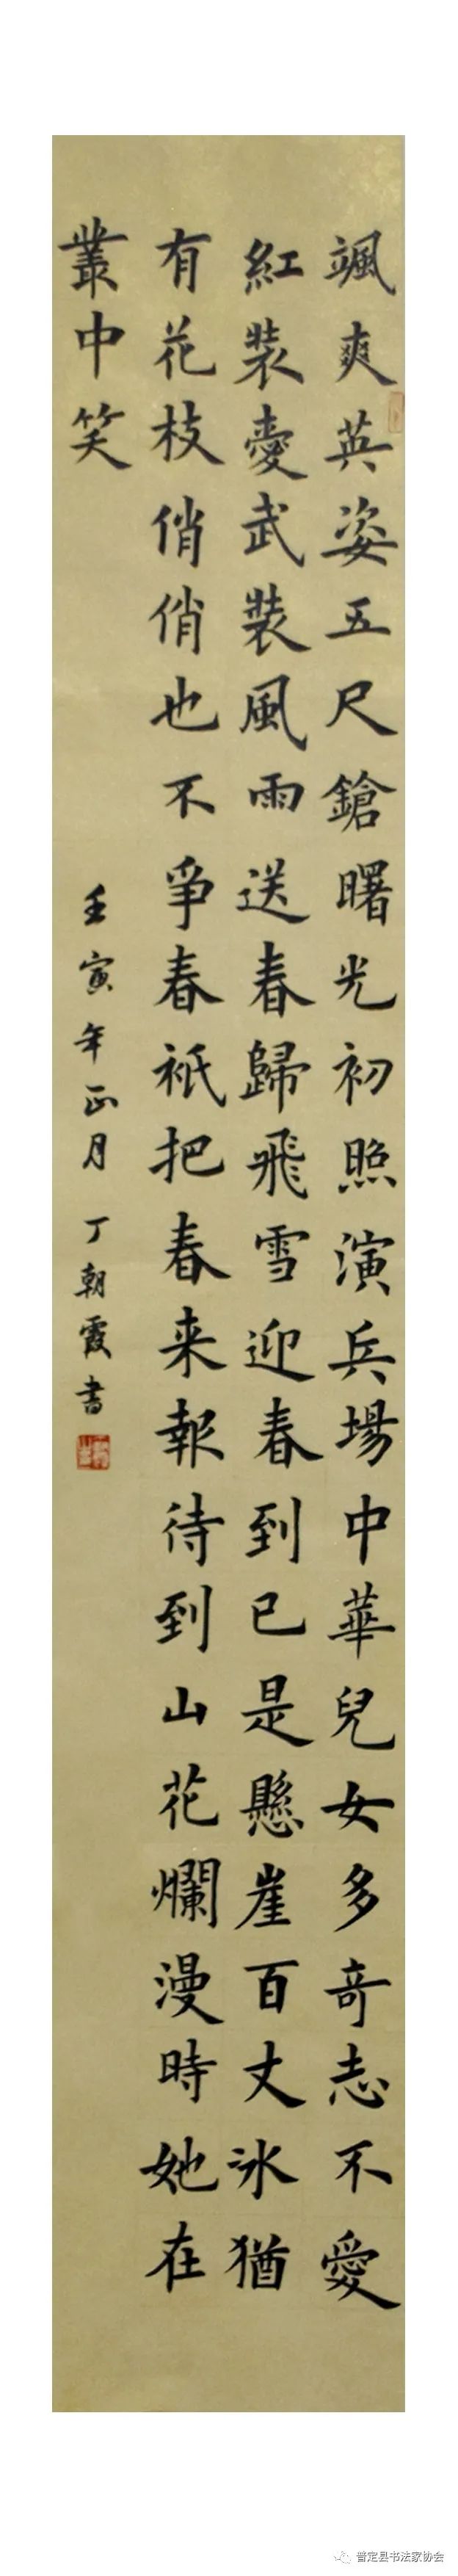 颯爽英姿五尺鎗曙光初照演兵場中華兒女多奇志不愛
紅裝愛武裝風雨送春歸飛雪迎春到已是懸崖百丈冰猶
有花枝俏俏也不爭春祇把春来報待到山花爛漫時她在
叢中笑
壬寅年正月 丁朝霞書
普定县书法家协会